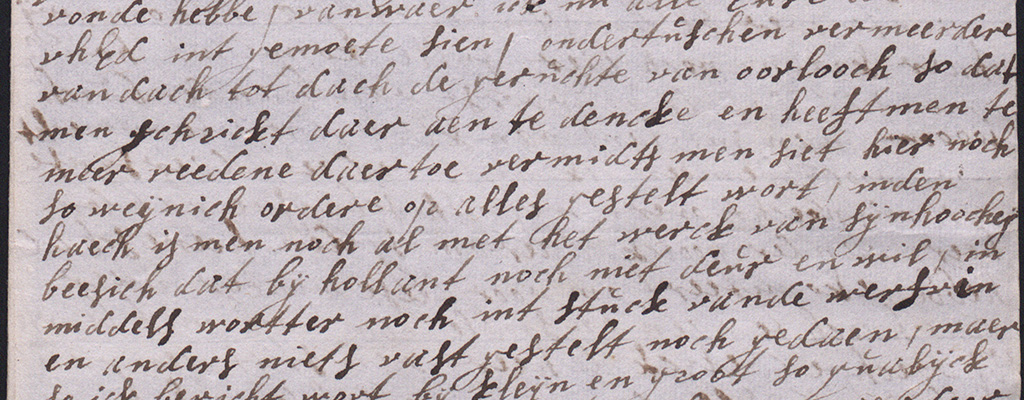 vonde hebbe / vanwaer ick nu alle
vhEd int gemoete sien / ondertuschen vermeerdere
van dach tot dach de geruchte van oorlooch so dat
men schrickt daer aen te dencke en heeft men te
meer reedene daer toe vermidts men siet hier noch
so weÿnich ordere op alles gestelt wort, inden
haech is men noch al met het werck van sÿnhoocheÿ
beesich dat bÿ hollant noch niet deur en wil, in
middels wortter noch int stuck vande werfvin
en anders niets vast gestelt noch gedaen, maer
so ick bericht wort bÿ kleÿn en groot so